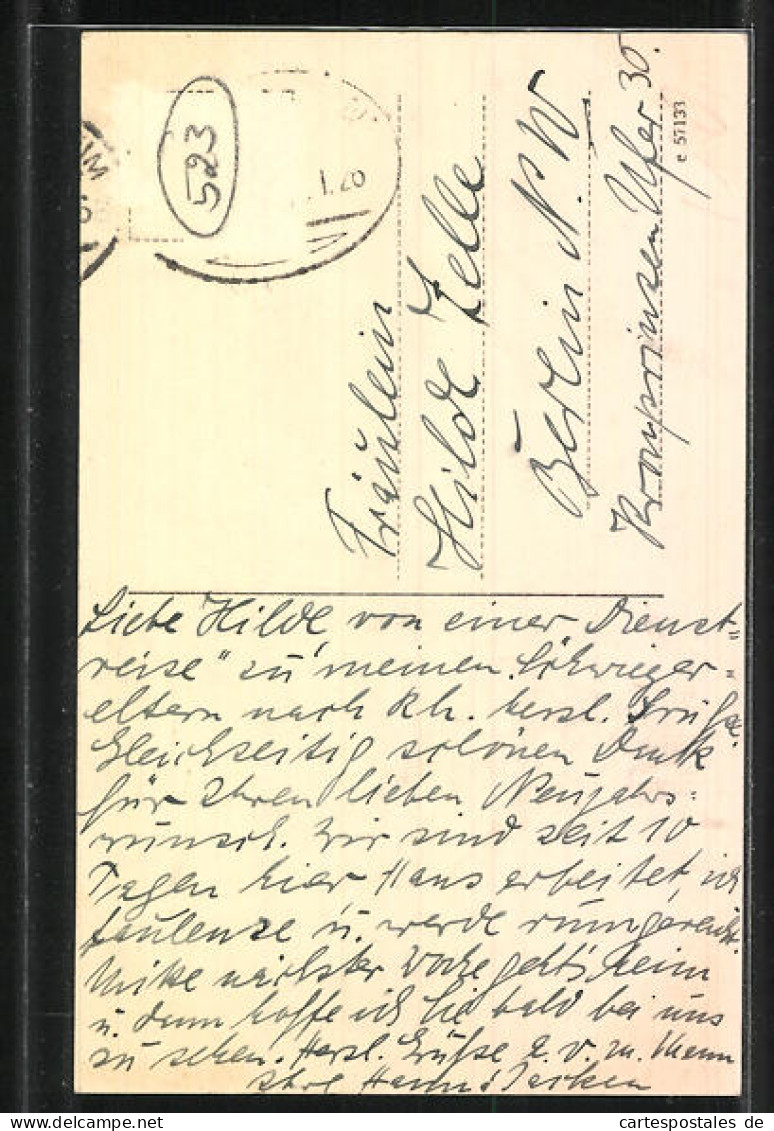 523
1.26
Fräulein
Hilde Zelle
Berlin N.W
Kronprinzen Ufer 30.
e 57133
Liebe Hilde, von einer "Dienst=
reise" zu meinen Schwieger=
eltern nach Rh. herzl. Grüße.
Gleichzeitig schönen Dank
für Ihren lieben Neujahrs=
wunsch. Wir sind seit 10
Tagen hier Hans arbeitet, ich
faulenze u. werde rumgereicht.
Mitte nächster Woche geht's heim
u. dann hoffe ich Sie bald bei uns
zu sehen. Herzl. Grüße a. v. m. Mann
Ihre
cartespostales.de